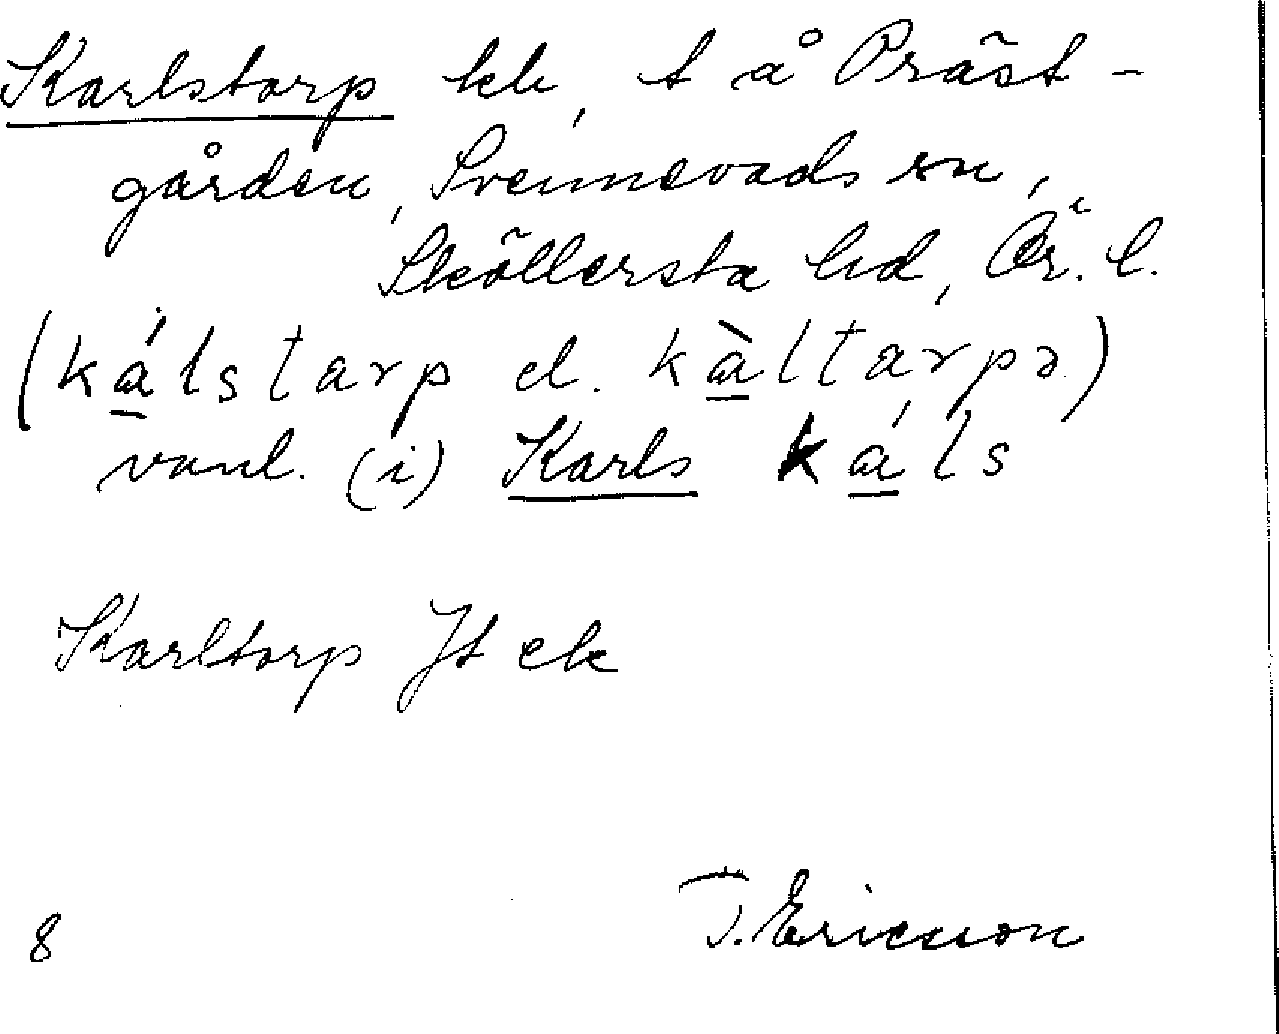 Karlstorp kh, t å Präst-
gården, Svennevads sn,
Sköllersta hd, Ör. l.
(kálstarp el. kàltarpə)
vanl. (i) Karls káls
Karltorp Jt ek
T. Ericsson
8